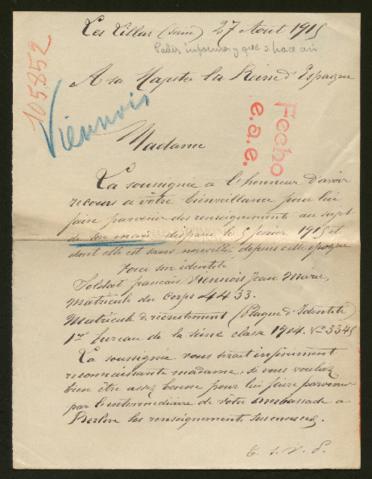 Les Lillas (Seine) 27 Aout 1915
105.852
Viennois
A sa Majesté la Reine d'Espagne
Fecho
e.a.e.
Madame
La soussignée a l'honneur d'avoir
recours a votre bienveillance pour lui
faire parvenir des renseignements au sujet
de son mari disparu le 5 février 1915 et
dont elle est sans nouvelle depuis cette époque
Voici son identité
Soldat français Viennois Jean Marie
Matricule du Corps 4433.
Matricule de recrutement (Plaque d'Identité)
1er bureau de la Seine classe 1904. No 3345
La soussignée vous serait infiniment
reconnaissante madame, si vous vouliez
bien être assez bonne pour lui faire parvenir
par l'intermédiaire de votre ambassade a
Berlin les renseignements
T. S. V. P.